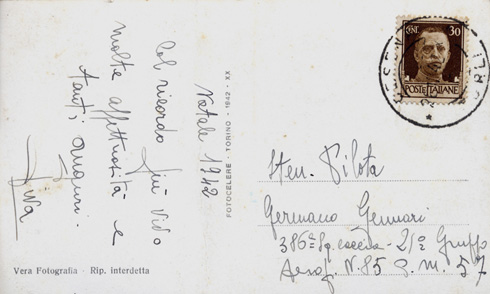 Natale 1942
Col ricordo più vivo
molte affettuosità e
tanti auguri.
FOTOCELERE - TORINO - 1942 - XX
Vera Fotografia - Rip. interdetta
CENT. 30
POSTE ITALIANE
Sten. Pilota
Germano Gennari
386ª Sq. caccia - 21º Gruppo
Aerop. N. 85 P. M. 57